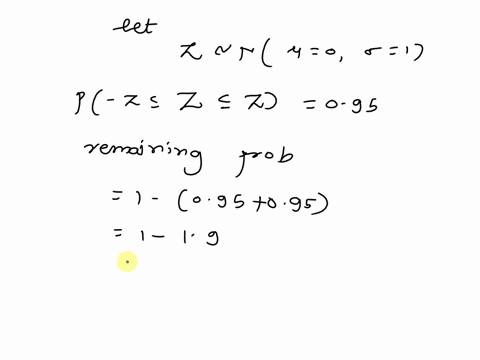 let
Z ~ N( μ=0, σ=1)
P(-z ≤ Z ≤ z) = 0.95
remaining prob
= 1 - (0.95+0.95)
= 1 - 1.9